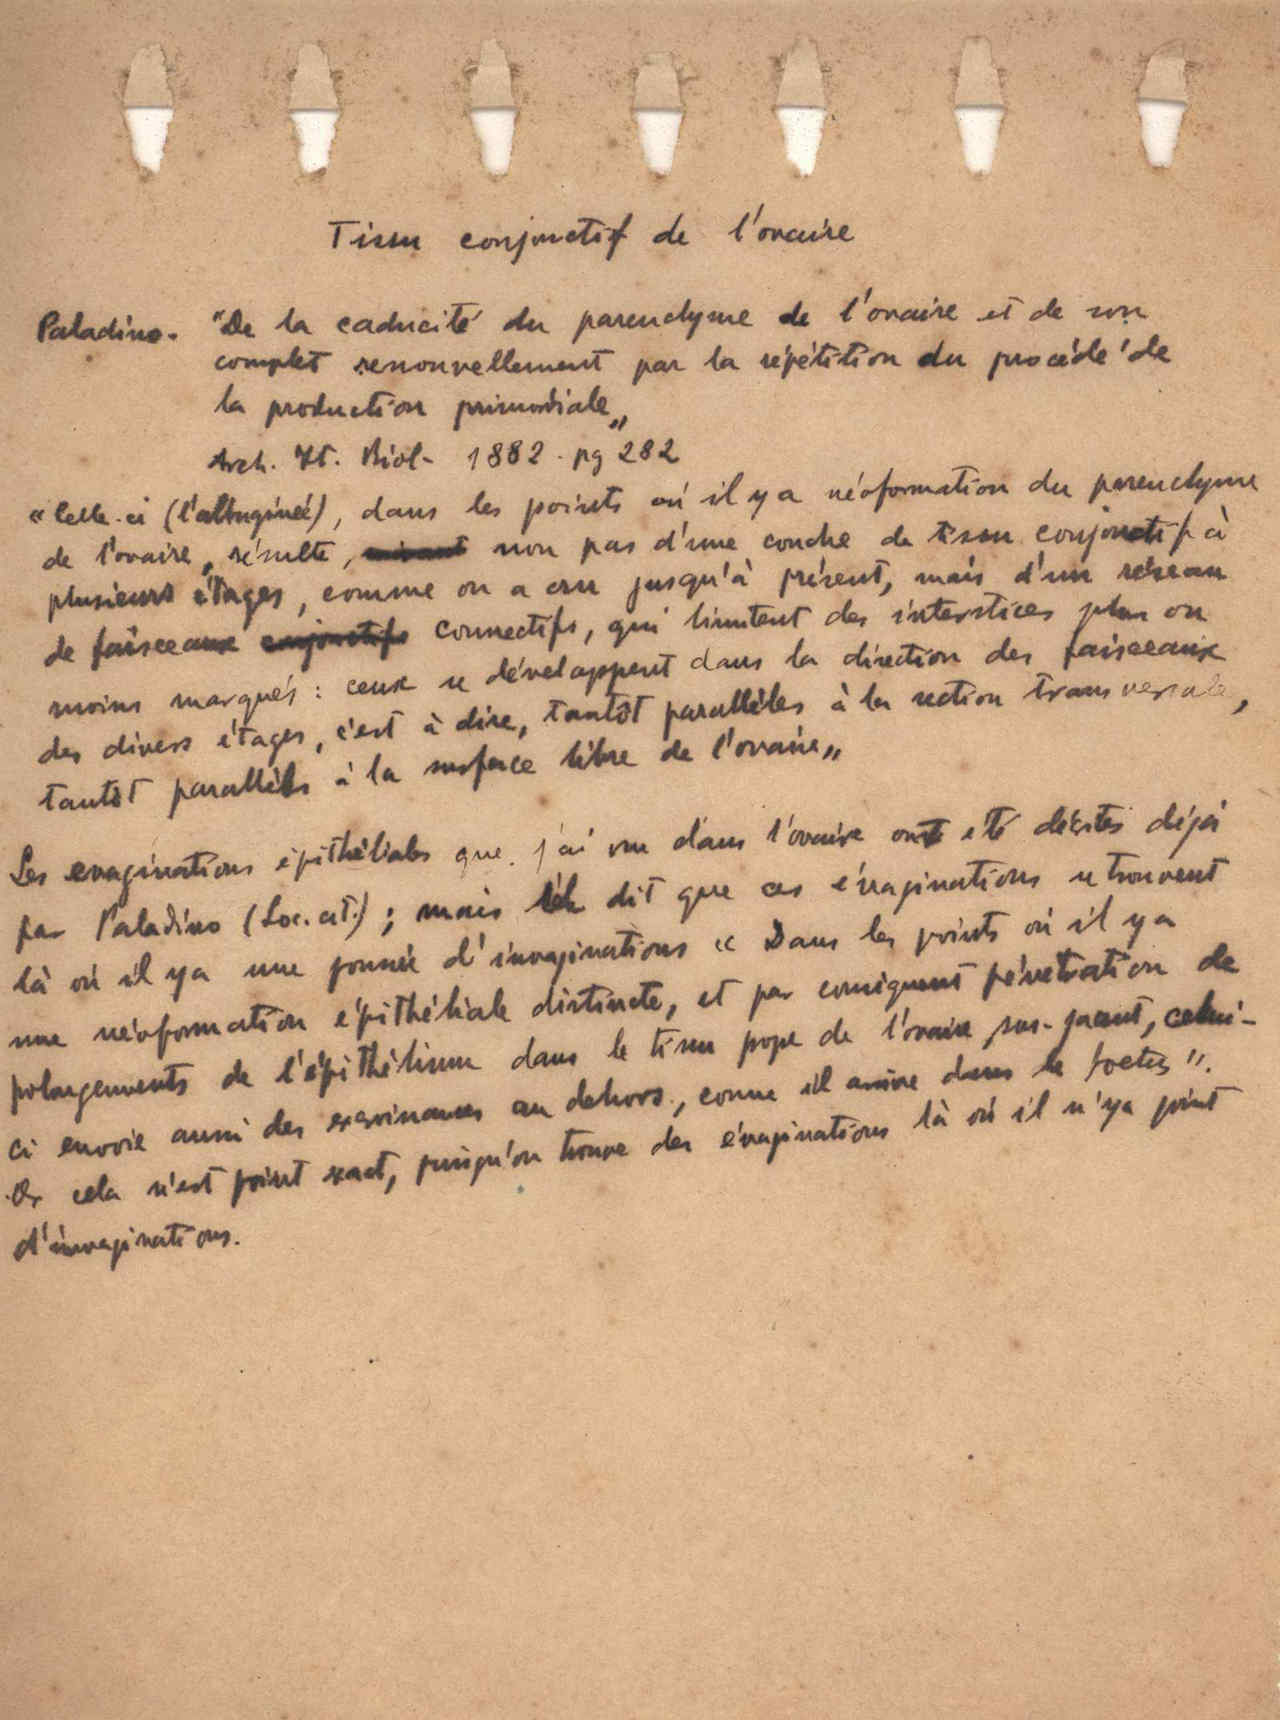 Tissu conjonctif de l'ovaire
Paladino. "De la caducité du parenchyme de l'ovaire et de son
complet renouvellement par la répétition du procédé de
la production primordiale„
Arch. It. Biol- 1882 - pg 282
"Celle-ci (l'albuginée), dans les points où il y a néoformation du parenchyme
de l'ovaire, résulte, non pas d'une couche de tissu conjonctif à
plusieurs étages, comme on a cru jusqu'à présent, mais d'un réseau
de faisceaux conjonctifs connectifs, qui limitent des interstices plus ou
moins marqués: ceux se développent dans la direction des faisceaux
des divers étages, c'est à dire, tantôt parallèles à la section transversale,
tantôt parallèles à la surface libre de l'ovaire„
Les evaginations épithéliales que j'ai vu dans l'ovaire ont eté décites déjà
par Paladino (Loc. cit.); mais dit que ces évaginations se trouvent
là où il y a une poussée d'invaginations « Dans les points où il y a
une néoformation épithéliale distincte, et par consiquent pénetration de
polongements de l'épithélium dans le tissu pope de l'ovaire sus-jacent, celui-
ci envoie aussi des excroisances au dehors, comme il arrive dans le foetus".
Or cela n'est point exact, puisqu'on trouve des évaginations là où il n'y a point
d'invaginations.